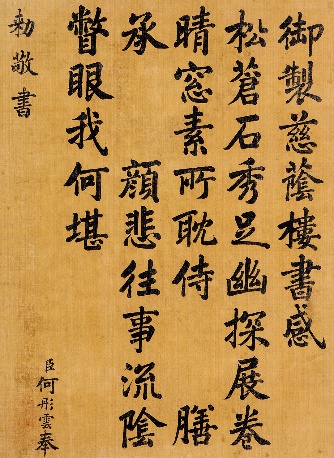 御製慈蔭樓書感
松蒼石秀足幽探展卷
晴窓素所耽侍 膳
承 顔悲往事流陰
瞥眼我何堪
臣何彤雲奉
勅敬書